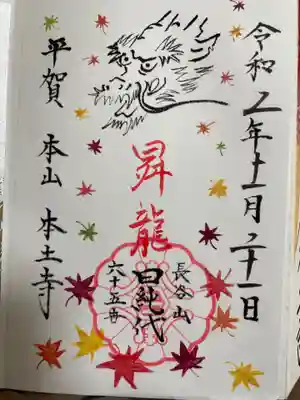 令和五年十一月二十一日
昇龍
長谷山
日純代
六十五世
平賀 本山 本土寺